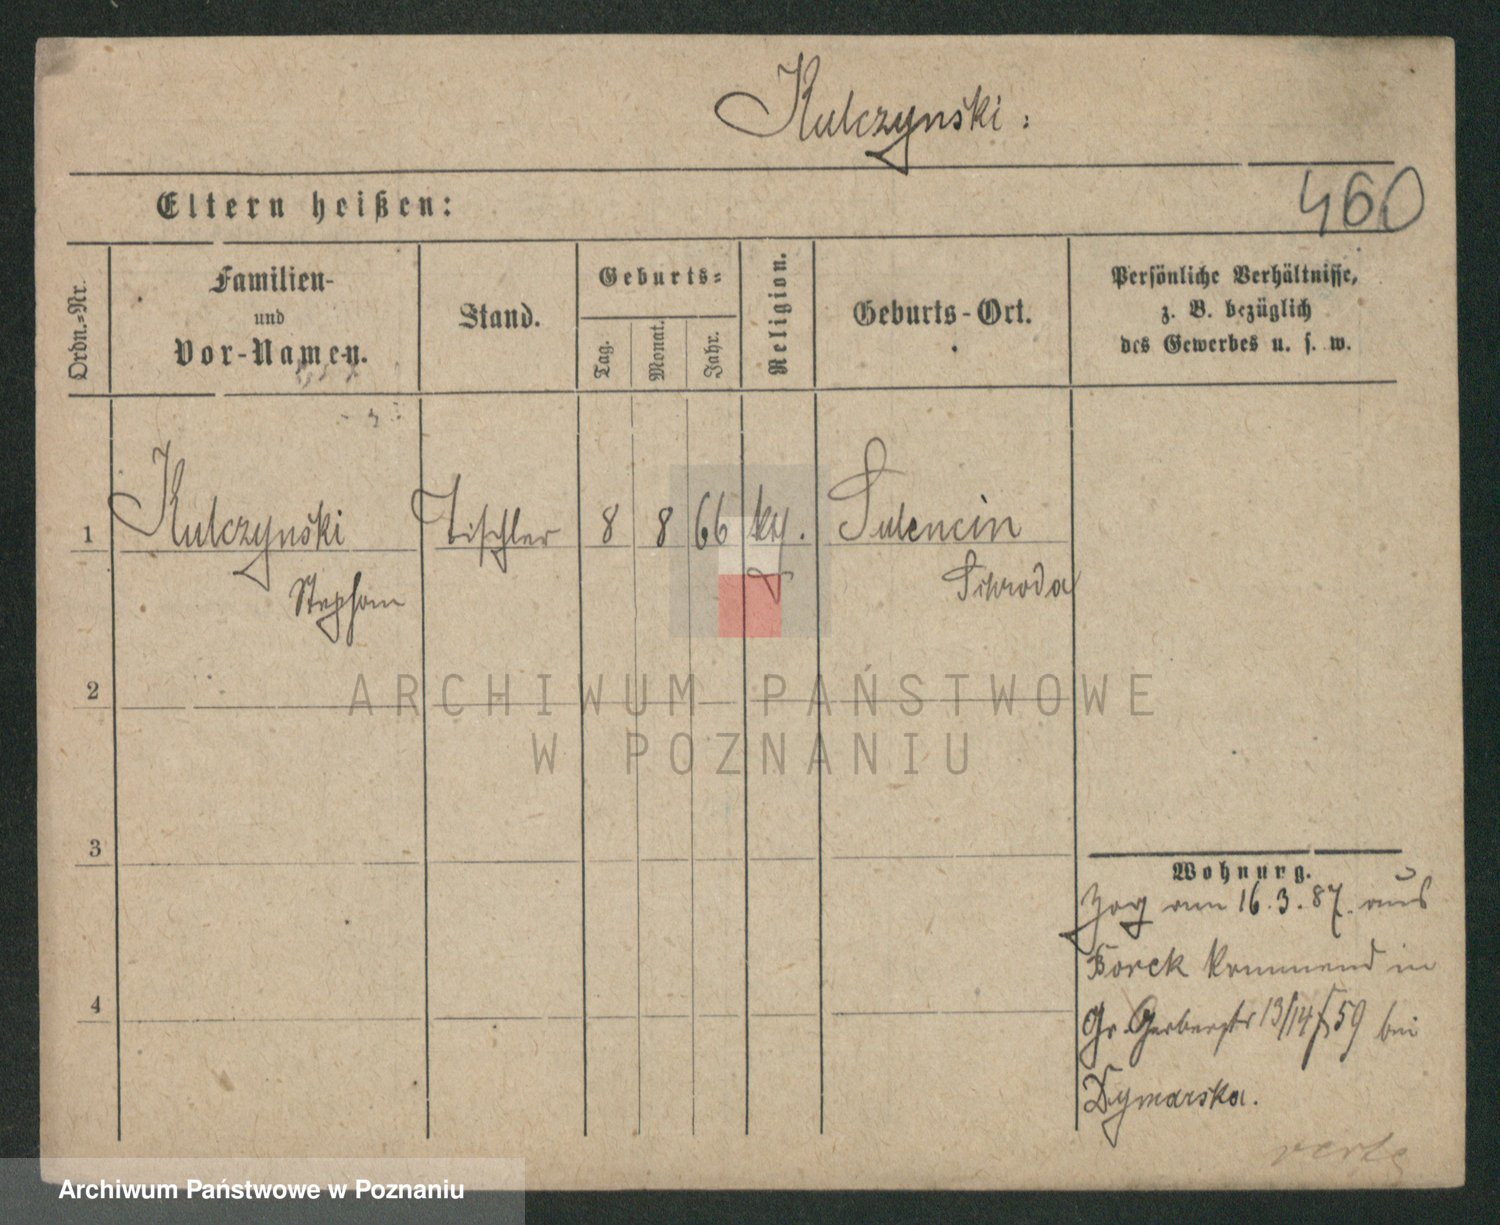 Kulczynski:
Eltern heißen:
460
Ordn.-Nr.
Familien-
und
Vor-Namen.
Stand.
Geburts-
Tag.
Monat.
Jahr.
Religion.
Geburts-Ort.
Persönliche Verhältnisse,
z. B. bezüglich
des Gewerbes u. s. w.
1 Kulczynski Tischler 8 8 66 kg. Sulencin
Stephan Schroda
2
ARCHIWUM PAŃSTWOWE
W POZNANIU
3
Wohnung.
Zog am 16.3.87. aus
Borek kommend in
4
Gr. Gerberstr 13/14/59 bei
Dymarska.
verte
Archiwum Państwowe w Poznaniu